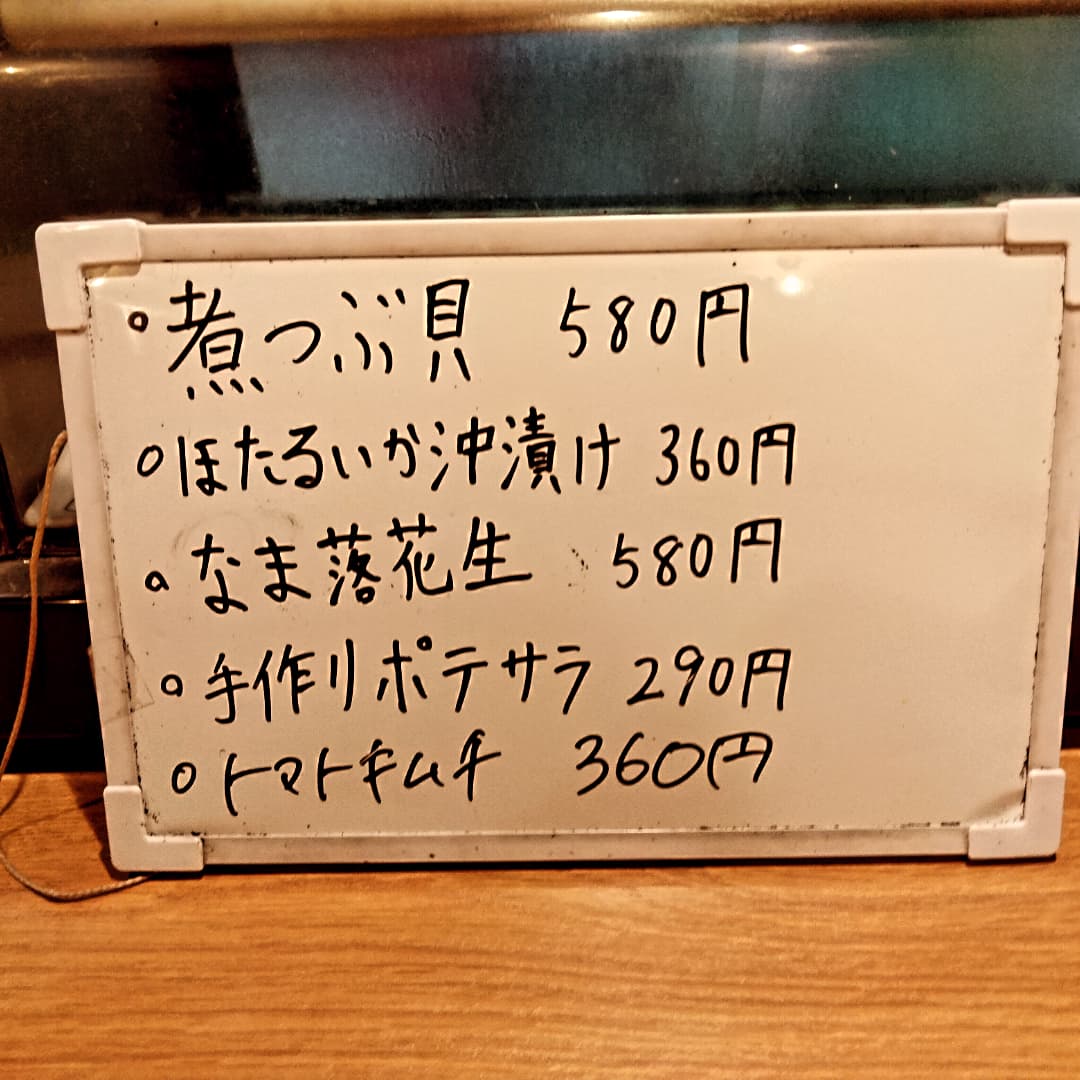 ○煮つぶ貝 580円
○ほたるいか沖漬け 360円
○なま落花生 580円
○手作りポテサラ 290円
○トマトキムチ 360円